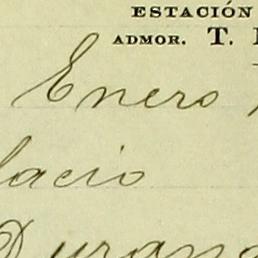 ESTACIÓN
ADMOR. T.
Enero
lacio
Durang